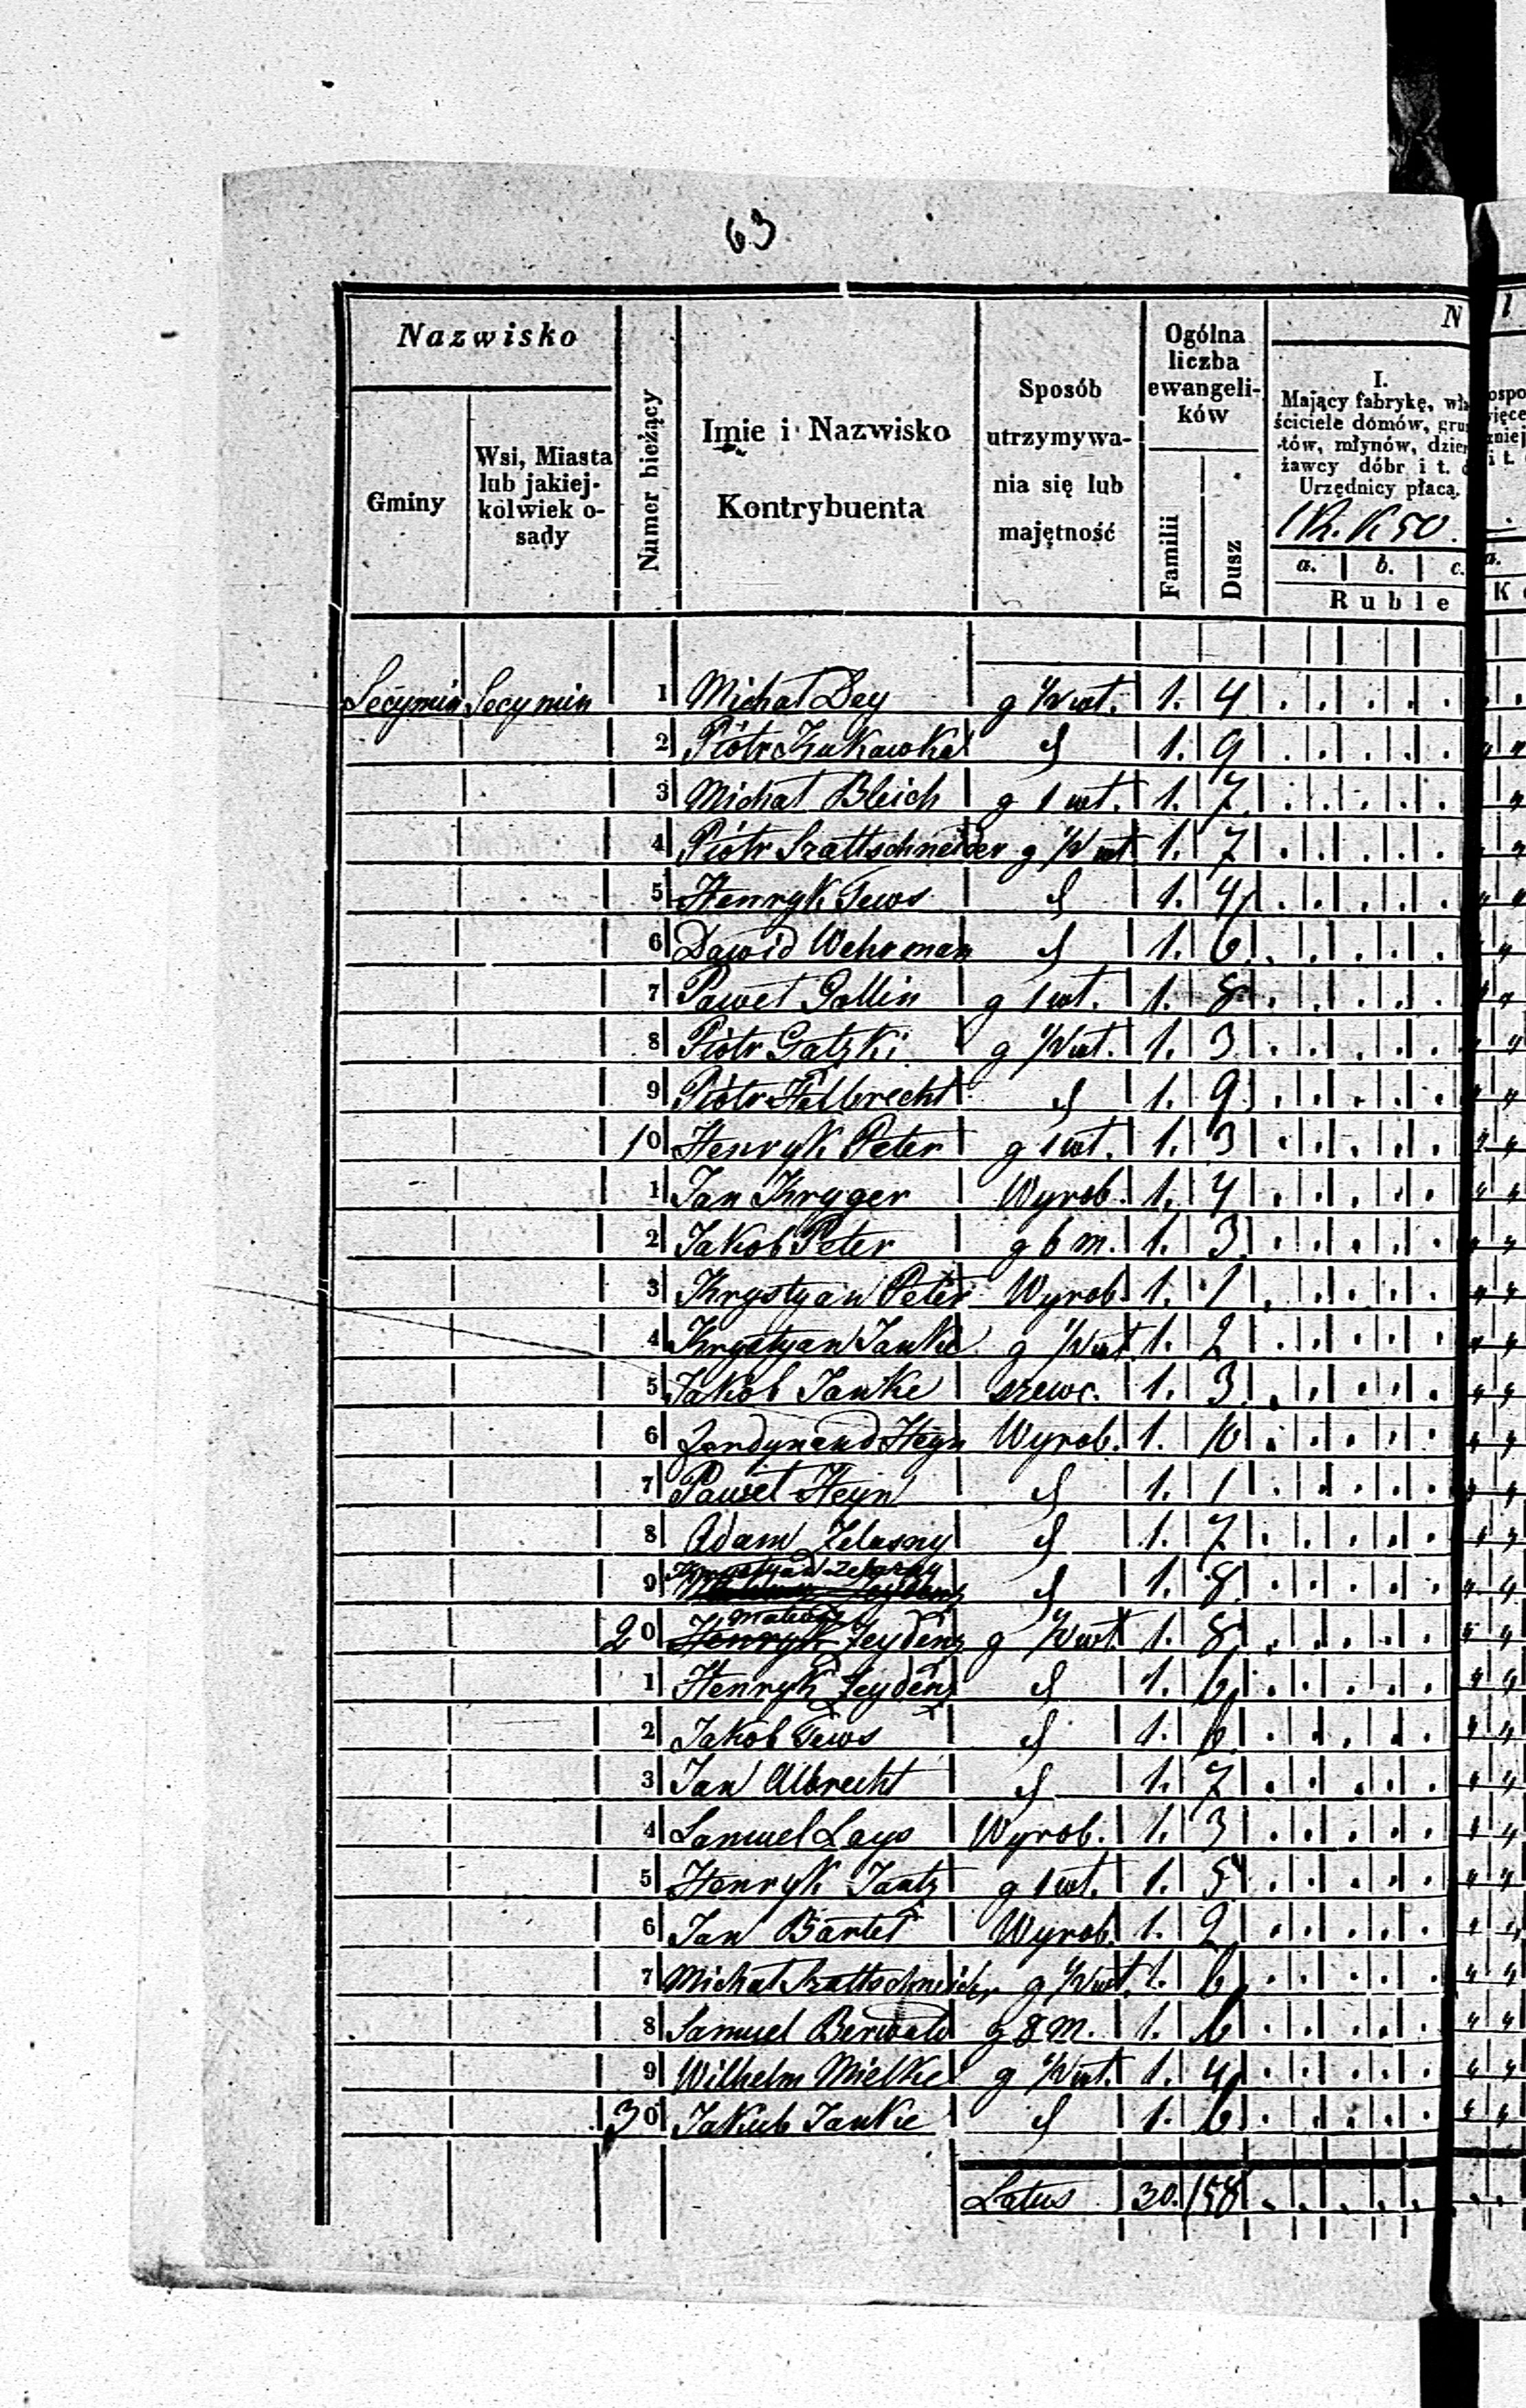 63
Nazwisko
Gminy
Wsi, Miasta lub jakiej-kolwiek o-sady
Numer bieżący
Imie i Nazwisko Kontrybuenta
Sposób utrzymywa-nia się lub majętność
Ogólna liczba ewangeli-ków
Familii
Dusz
N
I.
Mający fabrykę,
ściciele domów,
tów, młynów,
żawcy dóbr i t.
Urzędnicy płacą.
1 R. K 50.
a. b. c.
Ruble
Secymin Secymin 1 Michał Dey g ½ wł. 1. 4
2 Piótr Kukawka 1. 9
3 Michał Bleich g 1 wł. 1. 7
4 Piótr Szattschneider g ½ wł 1. 7
5 Henryk Tews 1. 4
6 Dawid Wehrman 1. 6
7 Paweł Gollin g 1 wł. 1. 8
8 Piótr Gatzki g ½ wł. 1. 3
9 Piótr Hellbrecht 1. 9
10 Henryk Peter g 1 wł. 1. 3
1 Jan Kryger Wyrob. 1. 4
2 Jakob Peter g 6 m. 1. 3
3 Krystyan Peter Wyrob. 1. 1
4 Krystyan Janke g ½ wł 1. 2
5 Jakob Janke szewc. 1. 3
6 Ferdynand Heyn Wyrob. 1. 10
7 Paweł Heyn 1. 1
8 Adam Zelasny 1. 7
9 Krystyan Zelazny 1. 8
Mateusz
20 Henryk Zeydenz g ½ wł 1. 8
1 Henryk Zeydenz 1. 6
2 Jakob Tews 1. 6
3 Jan Albrecht 1. 7
4 Samuel Lays Wyrob. 1. 3
5 Henryk Jantz g 1 wł. 1. 5
6 Jan Bartel Wyrob. 1. 2
7 Michał Szattschneider g ½ wł. 1. 6
8 Samuel Berwald g 8 m. 1. 6
9 Wilhelm Mielke g ½ wł. 1. 4
30 Jakub Janke 1. 6
Latus 30. 158